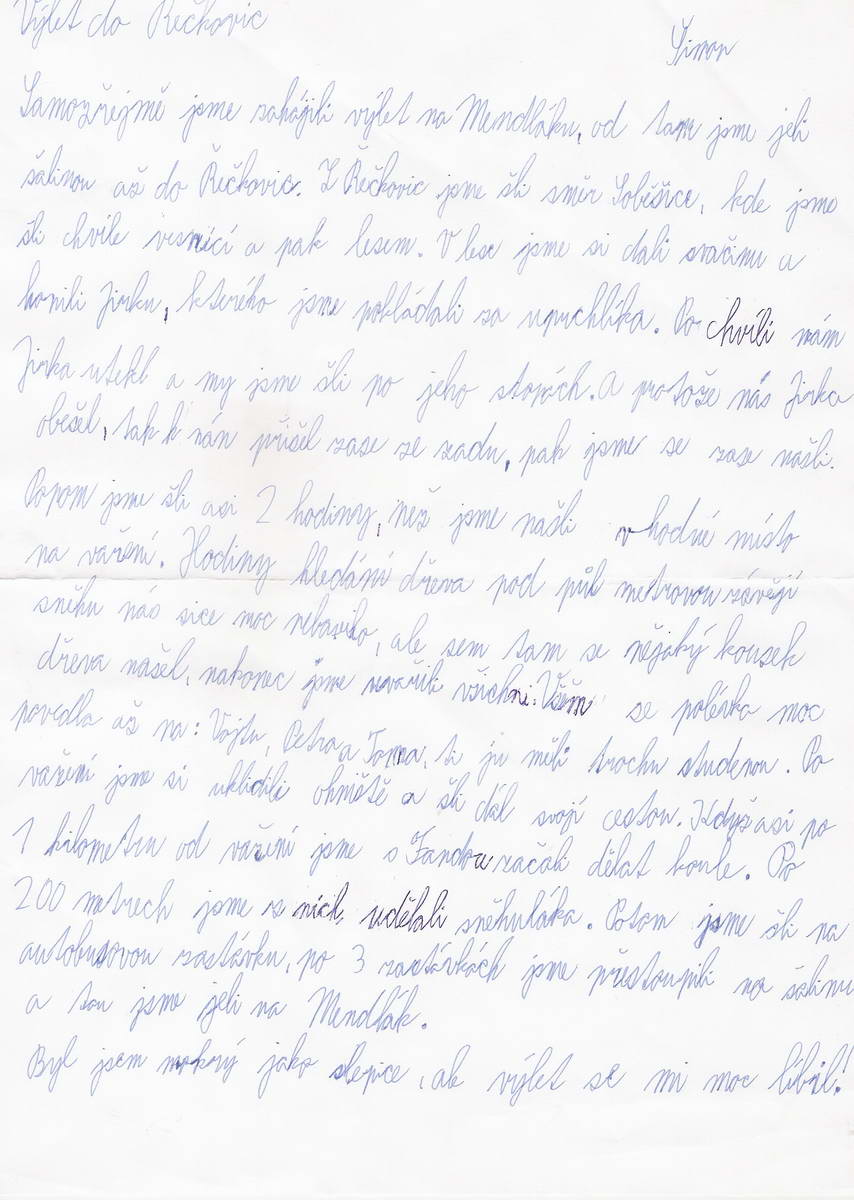 Výlet do Řečkovic
Šimon
Samozřejmě jsme zahájili výlet na Mendláku, od tam jsme jeli
šalinou až do Řečkovic. Z Řečkovic jsme šli směr Soběšice, kde jsme
šli chvíle vesnicí a pak lesem. V lese jsme si dali svačinu a
honili Jirku, kterého jsme pokládali za uprchlíka. Po chvíli nám
Jirka utekl a my jsme šli po jeho stopách. A protože nás Jirka
obešel, tak k nán přišel zase ze zadu, pak jsme se zase našli.
Popom jsme šli asi 2 hodiny, než jsme našli vhodné místo
na vaření. Hodiny hledání dřeva pod půl metrovou závějí
sněhu nás sice moc nebavilo, ale sem tam se nějaký kousek
dřeva našel, nakonec jsme uvařili všichni. Všem se polévka moc
povedla až na: Vojtu, Petra a Toma, ti ju měli trochu studenou. Po
vaření jsme si uklidili ohniště a šli dál svojí cestou. Když asi po
1 kilometru od vaření jsme s Fandou začali dělat koule. Po
200 metrech jsme z nich udělali sněhuláka. Potom jsme šli na
autobusovou zastávku, po 3 zastávkách jsme přestoupili na šalinu
a tou jsme jeli na Mendlák.
Byl jsem mokrý jako slepice, ale výlet se mi moc líbil!